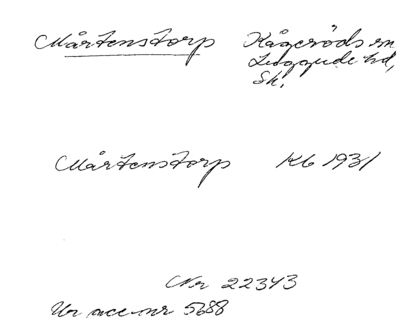 Mårtenstorp Kågeröds sn
Luggude hd,
Sk.
Mårtenstorp Kb 1931
Nr 22343
Ur acc nr 5688